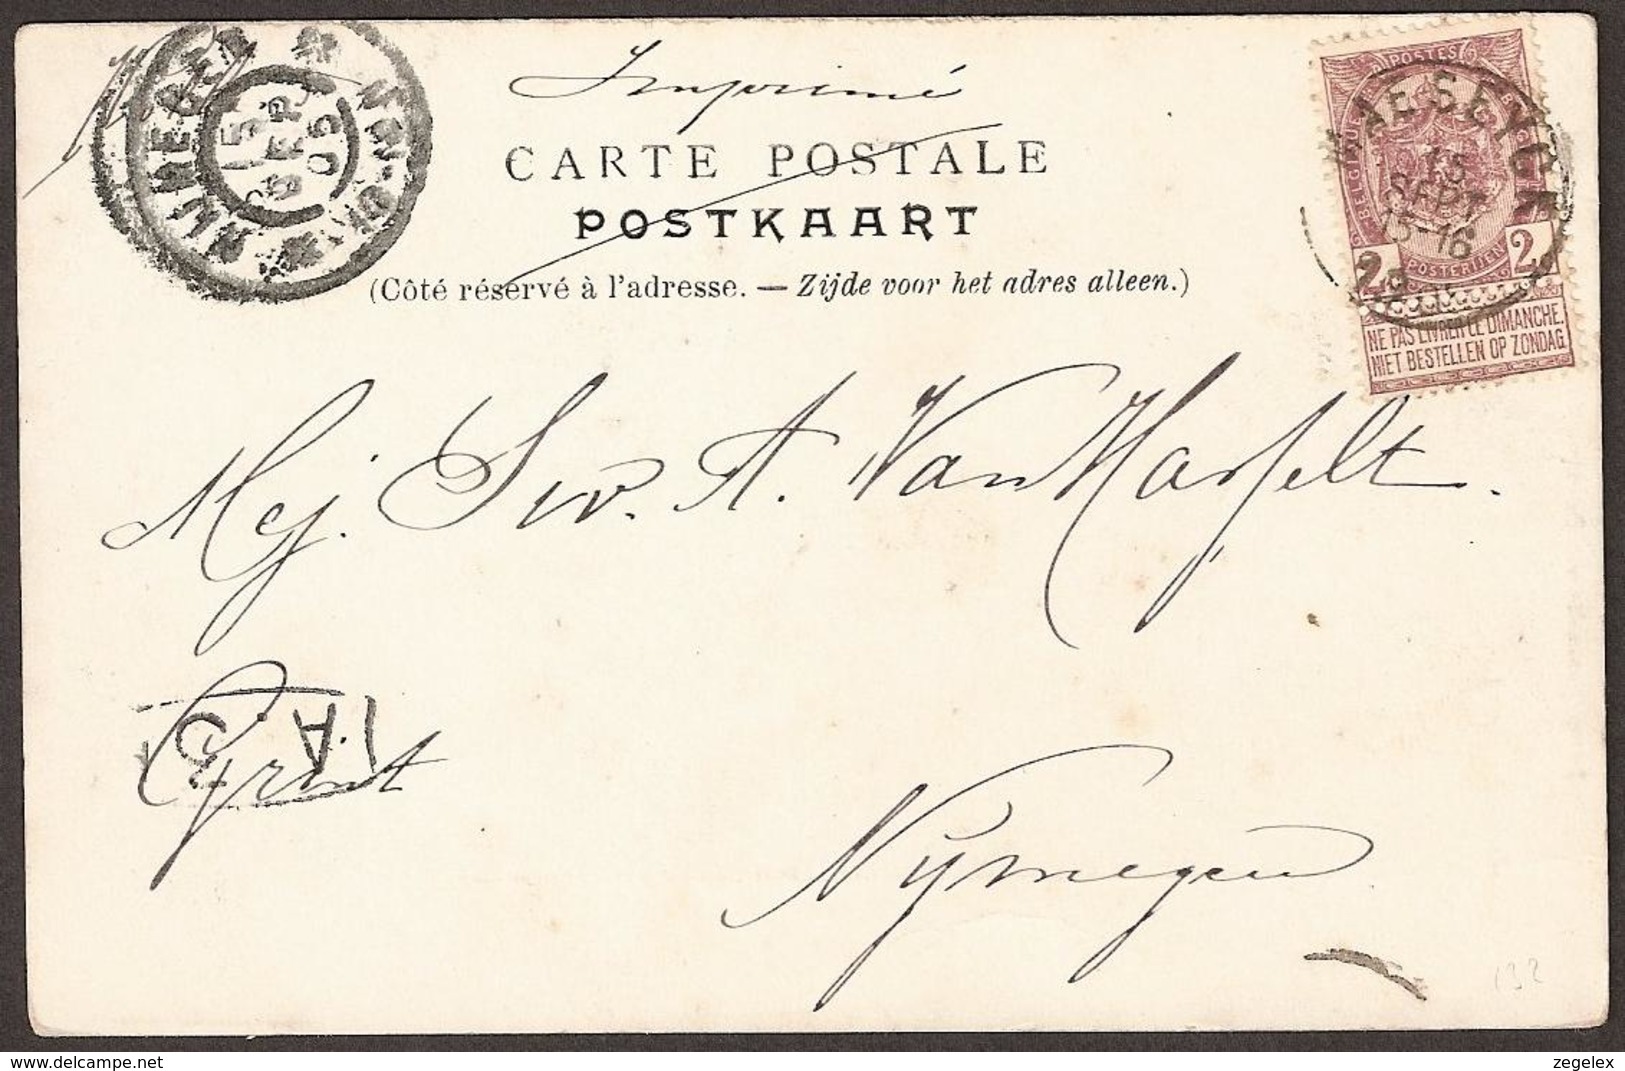 Imprimé
CARTE POSTALE
POSTKAART
(Côté réservé à l'adresse. — Zijde voor het adres alleen.)
NIJMEGEN
15 SEP
05
POSTES
BELGIQUE
MAESEYCK
15
SEPT
15-16
2 POSTERIJEN 2
NE PAS LIVRER LE DIMANCHE.
NIET BESTELLEN OP ZONDAG
Mej. A. Van Hasselt.
Nymegen
132
zegelex